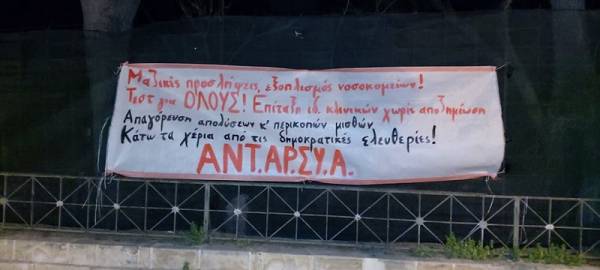 Μαζικές προσλήψεις, εξοπλισμός νοσοκομείων!
Τεστ για ΟΛΟΥΣ! Επίταξη ιδ. κλινικών χωρίς αποζημίωση
Απαγόρευση απολύσεων κ' περικοπών μισθών
Κάτω τα χέρια από τις δημοκρατικές ελευθερίες!
ΑΝΤ.ΑΡ.ΣΥ.Α.